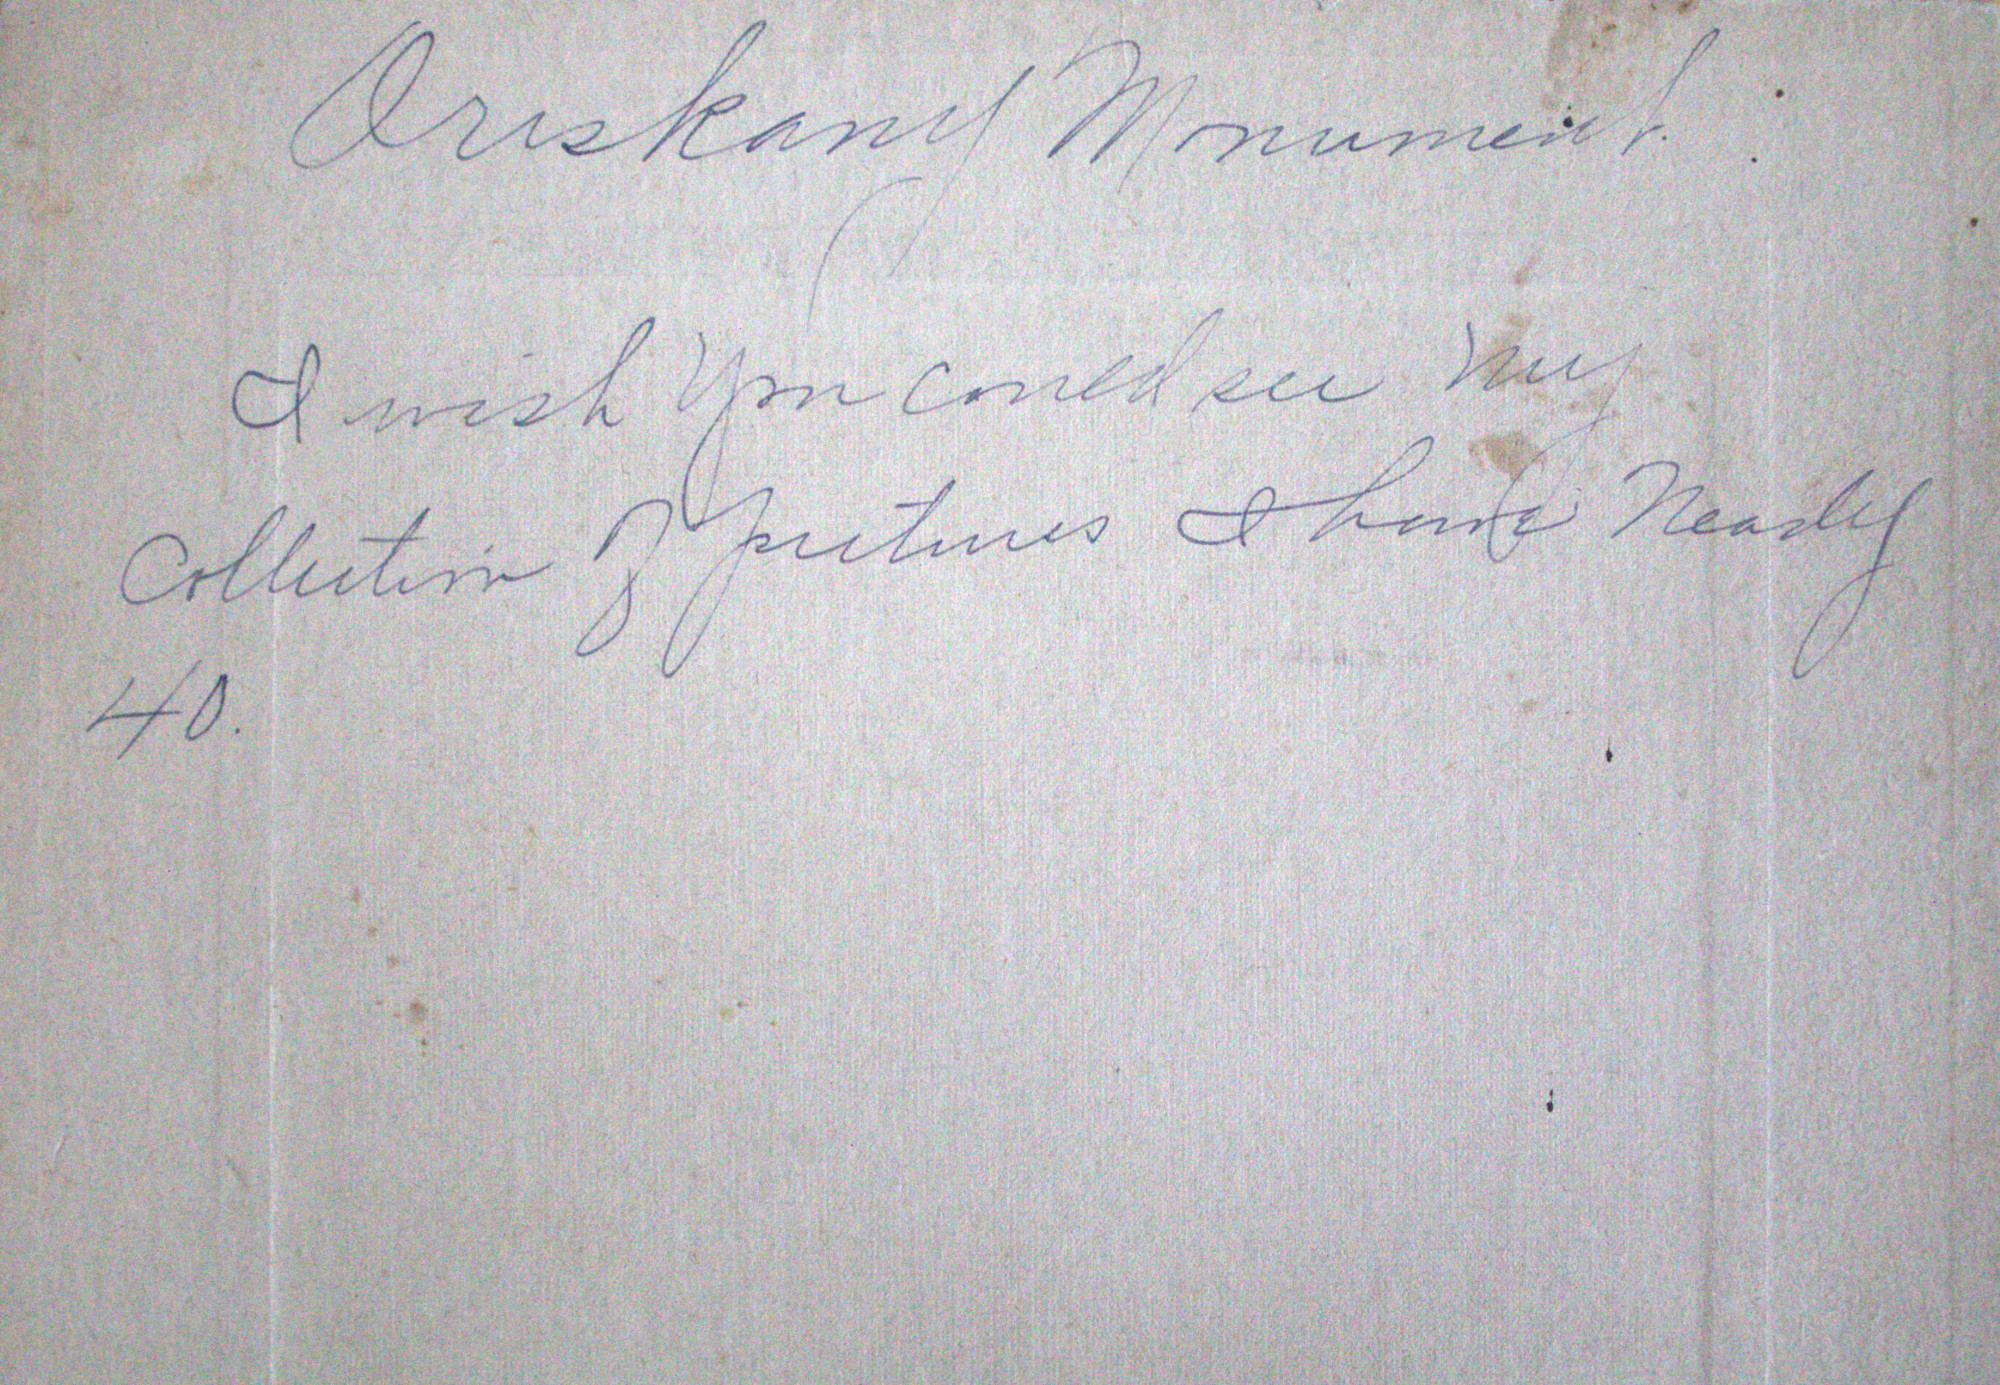 Oriskany Monument.
I wish you could see my
Collection of pictures I have Nearly
40.